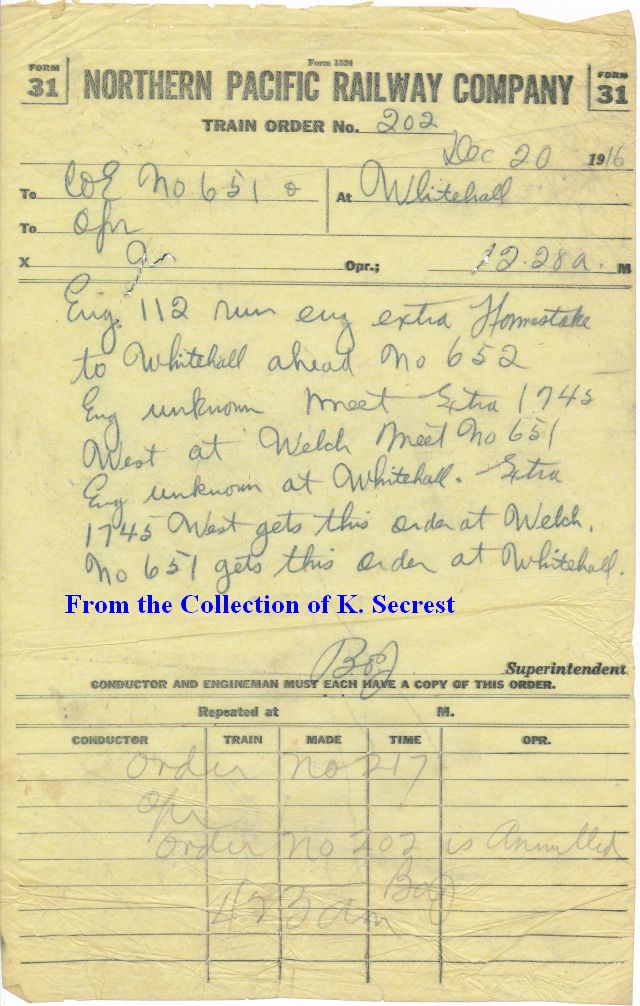 Form 1324
FORM 31 NORTHERN PACIFIC RAILWAY COMPANY FORM 31
TRAIN ORDER No. 202
Dec 20 1916
To C&E No 651 & At Whitehall
To Opr
X Opr.; 12.28a. M
Eng. 112 run eng extra Homestake
to Whitehall ahead No 652
Eng unknown meet Extra 1745
West at Welch Meet No 651
Eng unknown at Whitehall. Extra
1745 West gets this order at Welch.
No 651 gets this order at Whitehall.
From the Collection of K. Secrest
Superintendent
CONDUCTOR AND ENGINEMAN MUST EACH HAVE A COPY OF THIS ORDER.
Repeated at M.
CONDUCTOR TRAIN MADE TIME OPR.
Order No 217
Opr
Order No 202 is Annulled
423 am